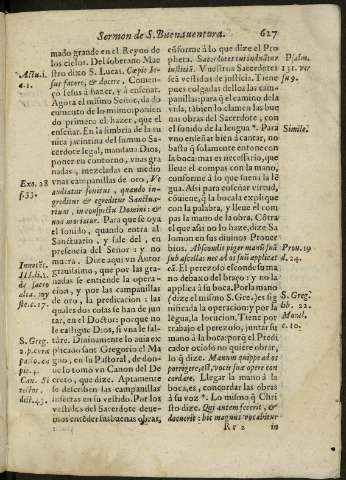 Sermon de S. Buenauentura. 627
mado grande en el Reyno de
los cielos. Del soberano Mae
stro dizo S. Lucas. Cœpit Ie-
sus facere, & docere. Comen-
çò Iesus à hazer, y à enseñar.
Agora el mismo Señor, da do
cumento de lo mismo ponien
do primero el hazer, que el
enseñar. En la fimbria de su tu
nica jacintina del summo Sa-
cerdote legal, mandaua Dios,
poner en contorno, vnas gra
nadas, mezcladas en medio
vnas campanillas de oro, Vt
audiatur sonitus, quando in-
greditur & egreditur Sanctua-
rium, in conspectu Domini: &
non moriatur. Para que se oya
el sonido, quando entra al
Sanctuario, y sale del, en
presencia del Señor: y no
muera. Dize aqui vn Autor
grauissimo, que por las gra-
nadas se entiende la opera-
cion, y por las campanillas
de oro, la predicacion: las
quales dos cosas se han de jun
tar, en el Doctor: porque no
le castigue Dios, si vna le fal-
târe. Diuinamente lo auia ex
plicado sant Gregorio el Ma
gno, en su Pastoral, de don-
de lo tomò vn Canon del De
creto, que dize. Aptamente
se describen las campanillas
insertas en su vestido. Por los
vestidos del Sacerdote deue-
mos entender sus buenas obras,
Actu. 1.
a. 1.
Exo. 28
f. 33.
Innocẽ.
III. li. 1.
de sacro
alta. my
ste. c. 17.
S. Greg.
2. p. cura
pasto. c.
pit. 4.
Can. Si
rector.
dist. 43.
cõforme à lo que dize el Pro
pheta. Sacerdotes tui induãtur
iustitiã. Vuestros Sacerdotes
seã vestidos de justicia. Tiene
pues, tâbgadas dellos las cam
panillas: para q̃ el camino de la
vida, tambien clamen las bue
nas obras del Sacerdote, con
el sonido de la lengua *. Para
vno enseñar bien à cantar, no
basta q̃ solamente entone con
la boca: mas es necessario, que
lleue el compas con la mano,
conforme à lo que suena la lẽ
gua. Assi para enseñar virtud,
cõuiene, q̃ la boca explique
con la palabra, y lleue el com
pas la mano de la obra. Cõtra
el que assi no lo haze, dize Sa
lomon en sus diuinos Prouer
bios. Abscondit piger manũ suã
sub ascella: nec ad os suũ applicat
eã. El perezoso escõde su ma
no debaxo del braço: y no la
applica à su boca. Por la mano
(dize el mismo S. Gre.) es sig
nificada la operaciõ: y por la
lẽgua, la locucion. Tiene por
trabajo el perezoso, juntar su
mano à la boca: porq̃ el Predi
cador ocioso no quiere obrar,
lo q̃ dize. Manum quippe ad os
porrigere, est, voci suæ opere con
cordare. Llegar la mano à la
boca, es, concordar las obras
à su voz *. Lo mismo q̃ Chri
sto dize. Qui autem fecerit, &
docuerit: hic magnus vocabitur
Psalm.
131. ver
su 9.
Simile.
Prou. 19
d. 24.
S. Greg.
lib. 22.
Moral.
c. 10.
Rr 2 in